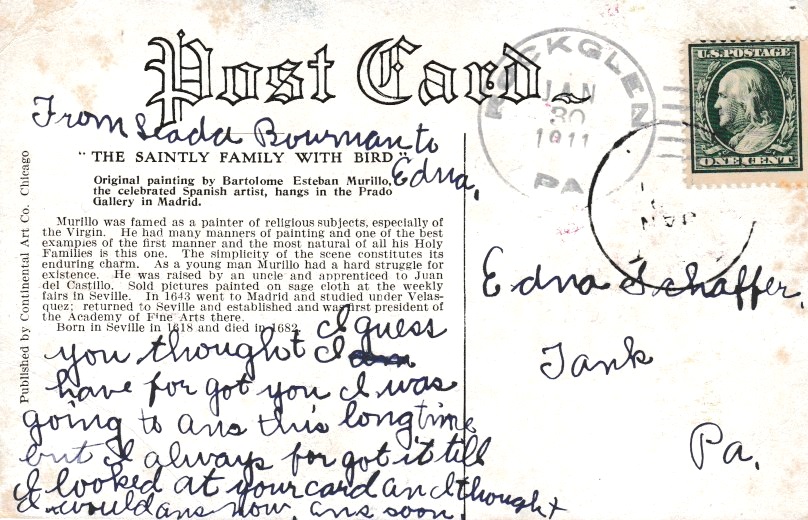 Post Card
From Scada Bowman to
Edna,
"THE SAINTLY FAMILY WITH BIRD"
Original painting by Bartolome Esteban Murillo,
the celebrated Spanish artist, hangs in the Prado
Gallery in Madrid.
Murillo was famed as a painter of religious subjects, especially of
the Virgin. He had many manners of painting and one of the best
examples of the first manner and the most natural of all his Holy
Families is this one. The simplicity of the scene constitutes its
enduring charm. As a young man Murillo had a hard struggle for
existence. He was raised by an uncle and apprenticed to Juan
del Castillo. Sold pictures painted on sage cloth at the weekly
fairs in Seville. In 1643 went to Madrid and studied under Velas-
quez; returned to Seville and established and was first president of
the Academy of Fine Arts there.
Born in Seville in 1618 and died in 1682.
I guess
you thought I
have for got you I was
going to ans this long time
but I always for got it till
I looked at your card and I thought
I would ans now, ans soon.
Published by Continental Art Co. Chicago
ROCKGLEN
JAN
30
1911
PA
U.S. POSTAGE
ONE CENT
JAN
Edna Schaffer,
Tank
Pa.